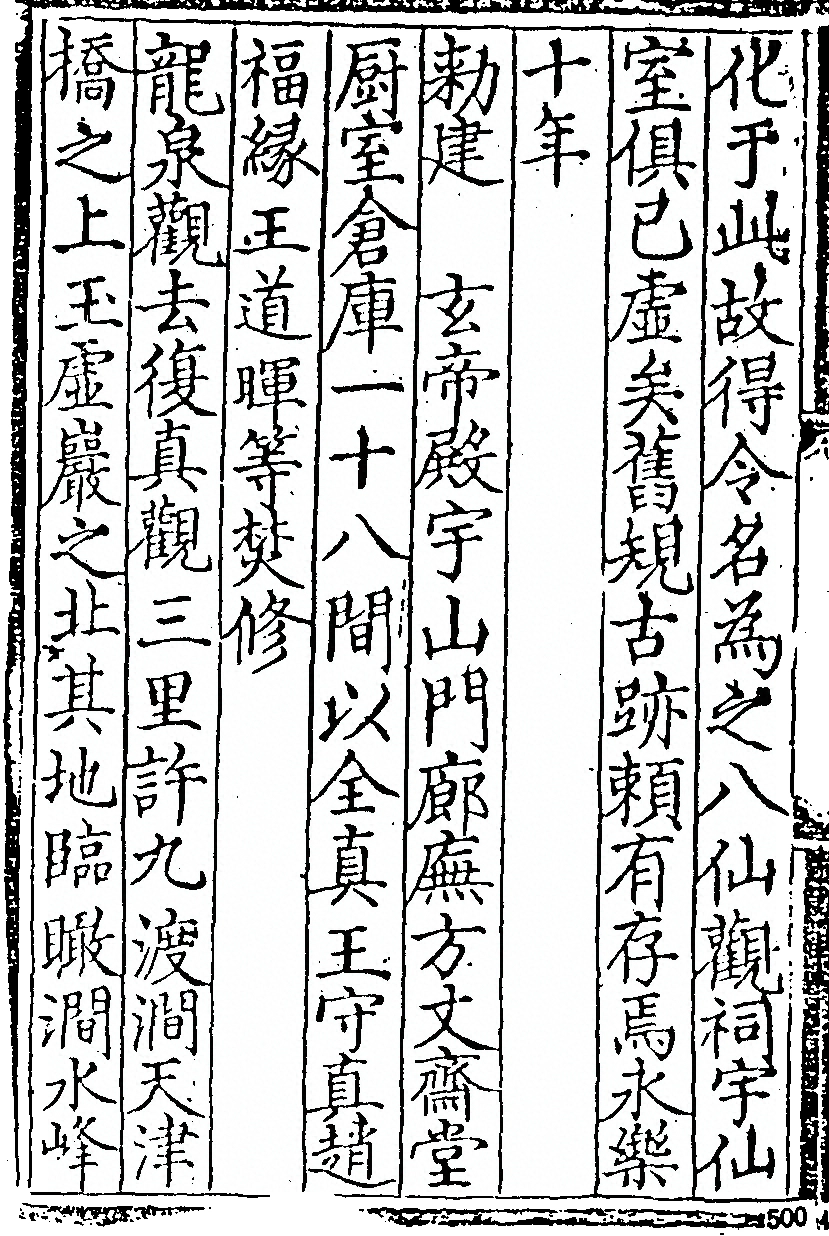 化于此故得令名為之八仙觀祠宇仙
室俱已虛矣舊規古跡頼有存焉永樂
十年
勑建　玄帝殿宇山門廊廡方丈齋堂
厨室倉庫一十八間以全真王守真趙
福緣王道暉等焚修
龍泉觀去復真觀三里許九渡澗天津
橋之上玉虛巖之北其地臨瞰澗水峰
500